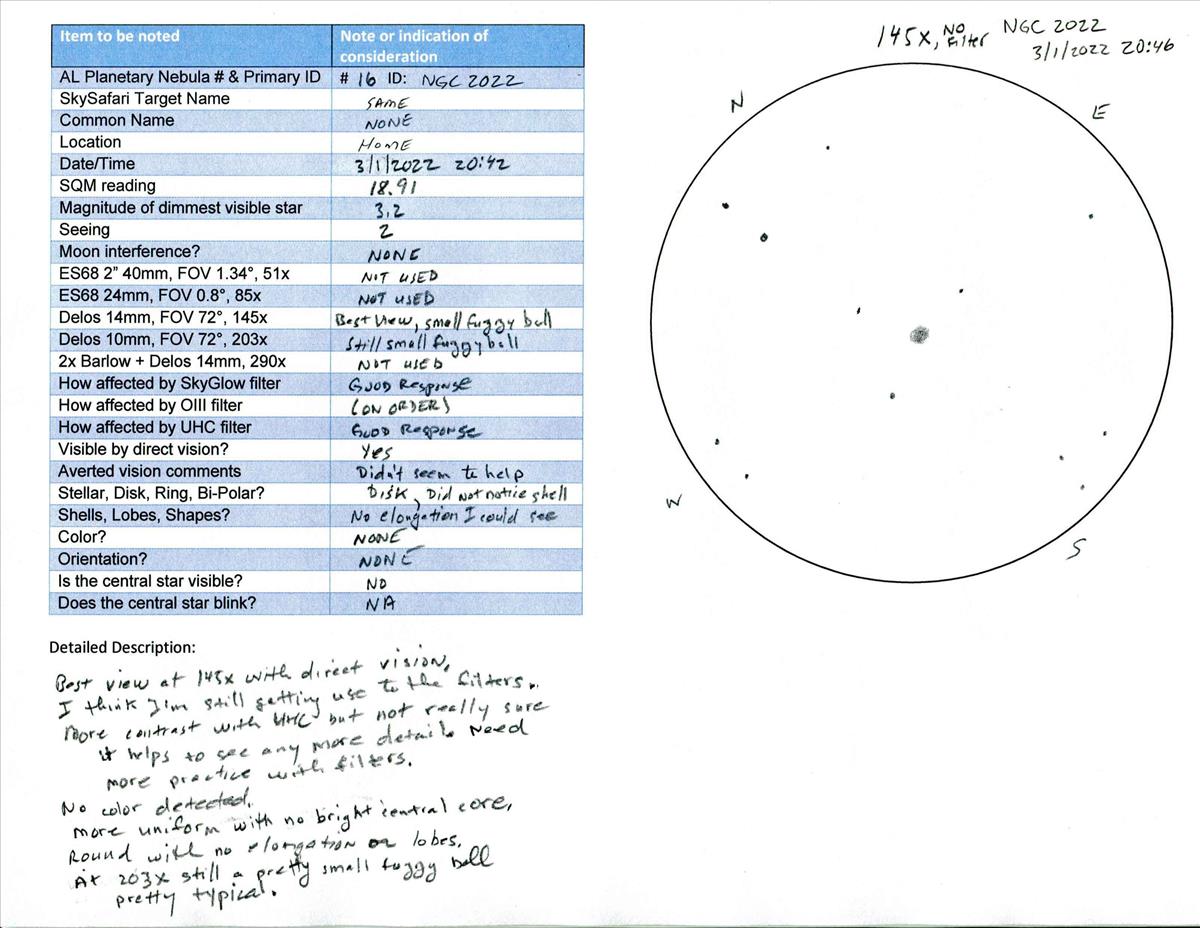 Item to be noted Note or indication of consideration
AL Planetary Nebula # & Primary ID # 16 ID: NGC 2022
SkySafari Target Name SAME
Common Name NONE
Location HOME
Date/Time 3/1/2022 20:42
SQM reading 18.91
Magnitude of dimmest visible star 3.2
Seeing 2
Moon interference? NONE
ES68 2” 40mm, FOV 1.34°, 51x NOT USED
ES68 24mm, FOV 0.8°, 85x NOT USED
Delos 14mm, FOV 72°, 145x Best View, small fuzzy ball
Delos 10mm, FOV 72°, 203x Still small fuzzy ball
2x Barlow + Delos 14mm, 290x NOT USED
How affected by SkyGlow filter GOOD Response
How affected by OIII filter (ON ORDER)
How affected by UHC filter GOOD Response
Visible by direct vision? Yes
Averted vision comments Didn't seem to help
Stellar, Disk, Ring, Bi-Polar? DISK, Did Not notice shell
Shells, Lobes, Shapes? No elongation I could see
Color? NONE
Orientation? NONE
Is the central star visible? NO
Does the central star blink? NA
Detailed Description:
Best view at 145x with direct vision,
I think I'm still getting use to the filters..
More contrast with UHC but not really sure
it helps to see any more detail. Need
more practice with filters.
No color detected.
more uniform with no bright central core,
Round with no elongation or lobes.
At 203x still a pretty small fuzzy ball
pretty typical.
145x, NO Filter NGC 2022
3/1/2022 20:46
N
E
W
S